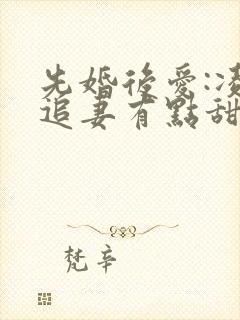 先婚後愛:凌
追妻有點甜
梵辛